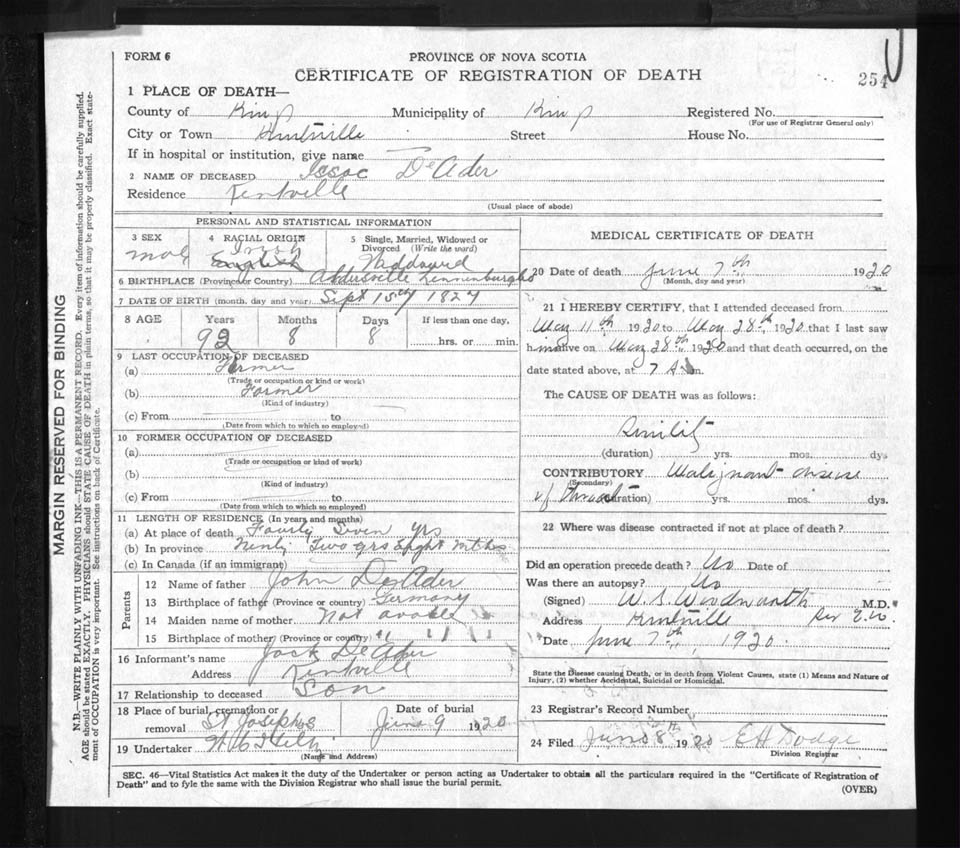 FORM 6
PROVINCE OF NOVA SCOTIA
CERTIFICATE OF REGISTRATION OF DEATH
254
1 PLACE OF DEATH—
County of Kings Municipality of Kings Registered No.
(For use of Registrar General only)
City or Town Kentville Street House No.
If in hospital or institution, give name
2 NAME OF DECEASED Issac DeAder
Residence Kentville
(Usual place of abode)
PERSONAL AND STATISTICAL INFORMATION
3 SEX 4 RACIAL ORIGIN 5 Single, Married, Widowed or
Divorced (Write the word)
male English
6 BIRTHPLACE (Province or Country)
7 DATE OF BIRTH (month, day and year) Sept 15th 1827
8 AGE Years Months Days If less than one day,
92 8 8 hrs. or min.
9 LAST OCCUPATION OF DECEASED
(a) Farmer
(Trade or occupation or kind or work)
(b) Farmer
(Kind of industry)
(c) From to
(Date from which to which so employed)
10 FORMER OCCUPATION OF DECEASED
(a)
(Trade or occupation or kind of work)
(b)
(Kind of industry)
(c) From to
(Date from which to which so employed)
11 LENGTH OF RESIDENCE (In years and months)
(a) At place of death Fourty Seven yrs
(b) In province Ninty Two yrs Eight mths
(c) In Canada (if an immigrant)
Parents
12 Name of father John DeAder
13 Birthplace of father (Province or country) Germany
14 Maiden name of mother Not
15 Birthplace of mother (Province or country) "
16 Informant's name Jack DeAder
Address Kentville
17 Relationship to deceased Son
18 Place of burial, cremation or Date of burial
removal St Josephs June 9 1920
19 Undertaker
(Name and Address)
MEDICAL CERTIFICATE OF DEATH
20 Date of death June 7th 1920
(Month, day and year)
21 I HEREBY CERTIFY, that I attended deceased from
May 11th 1920 to May 28th 1920 that I last saw
him alive on May 28th 1920 and that death occurred, on the
date stated above, at 7 A m.
The CAUSE OF DEATH was as follows:
Senility
(duration) yrs. mos. dys
CONTRIBUTORY Malignant disease
(Secondary)
of throat (duration) yrs. mos. dys.
22 Where was disease contracted if not at place of death?
Did an operation precede death? No Date of
Was there an autopsy? No
(Signed) W. S. Woodworth M.D.
Address Kentville
Date June 7th, 1920.
State the Disease causing Death, or in death from Violent Causes, state (1) Means and Nature of
Injury, (2) whether Accidental, Suicidal or Homicidal.
23 Registrar's Record Number
24 Filed June 8th 1920 E H Dodge
Division Registrar
SEC. 46—Vital Statistics Act makes it the duty of the Undertaker or person acting as Undertaker to obtain all the particulars required in the "Certificate of Registration of
Death" and to fyle the same with the Division Registrar who shall issue the burial permit.
(OVER)
MARGIN RESERVED FOR BINDING
N.B.—WRITE PLAINLY WITH UNFADING INK—THIS IS A PERMANENT RECORD. Every item of information should be carefully supplied.
AGE should be stated EXACTLY. PHYSICIANS should STATE CAUSE OF DEATH in plain terms, so that it may be properly classified. Exact state-
ment of OCCUPATION is very important. See instructions on back of Certificate.